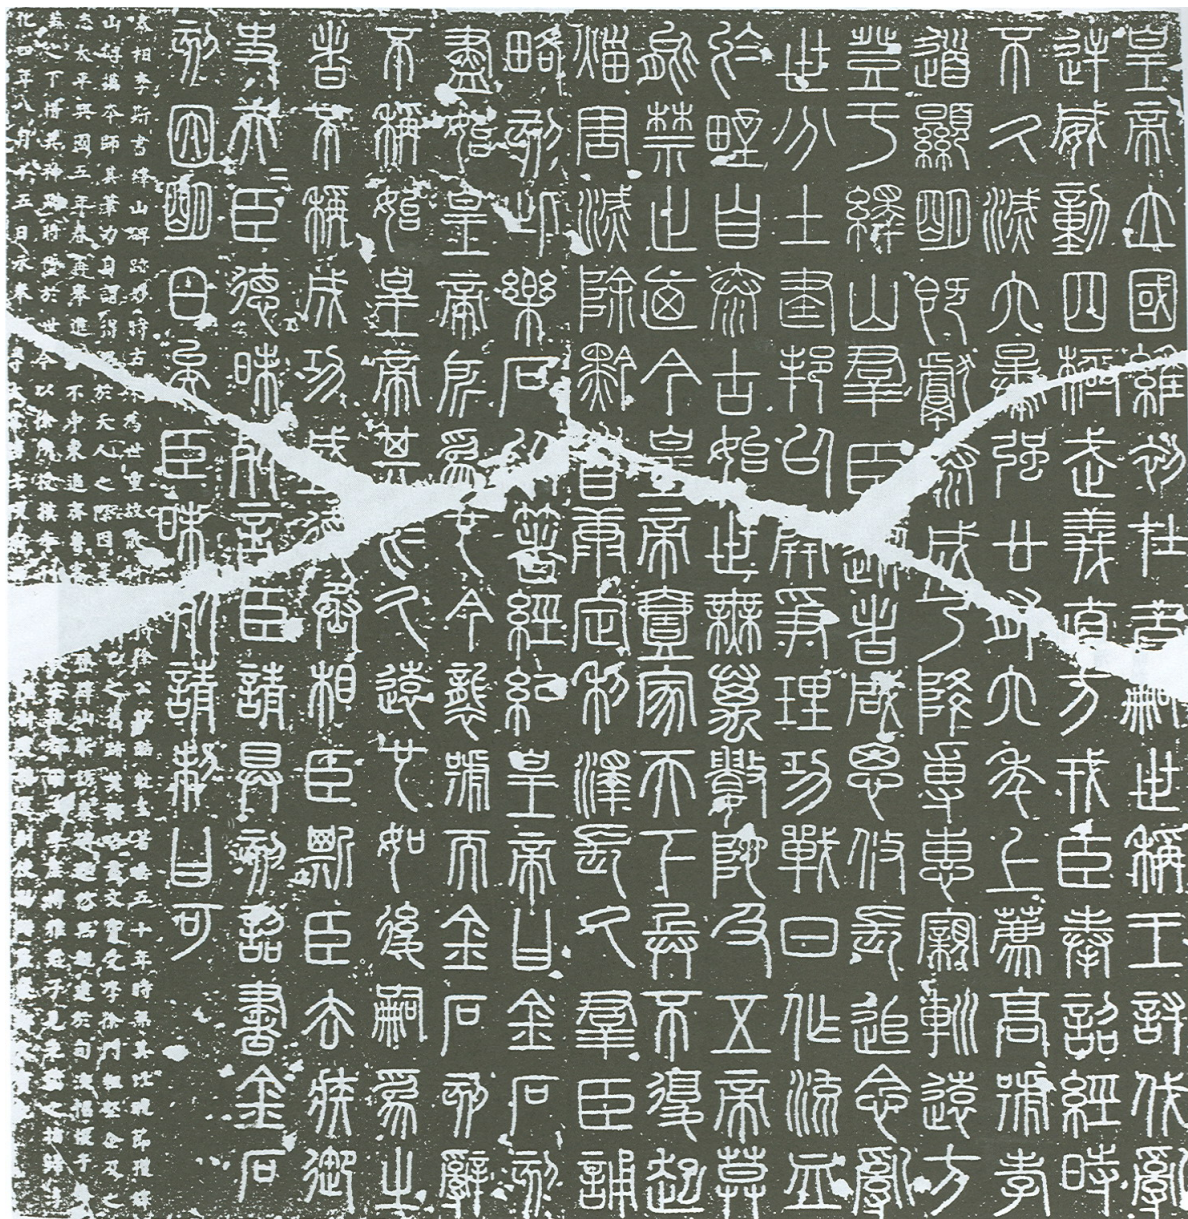 皇帝立國維初在昔嗣世稱王討伐亂
逆威動四極武義直方戎臣奉詔經時
不久滅六暴強廿有六年上薦高號孝
道顯明既獻泰成乃降專惠親巡遠方
登于繹山群臣從者咸思攸長追念亂
世分土建邦以開爭理功戰日作流血
於野自泰古始世無萬數陀及五帝莫
能禁止廼今皇帝壹家天下兵不復起
災害滅除黔首康定利澤長久群臣誦
略刻此樂石以著經紀皇帝曰金石刻
盡始皇帝所為也今襲號而金石刻辭
不稱始皇帝其於久遠也如後嗣為之
者不稱成功盛德丞相臣斯臣去疾御
史夫臣德昧死言臣請具刻詔書金石
刻因明白矣臣昧死請制曰可
秦相李斯書繹山碑跡妙時古殊為世重故散徐公鉉酷耽玉箸垂五十年時無其比晚節獲繹
山碑摸本師其筆力自謂得思於天人之際因己之舊跡焚擲略盡文寶受學徐門粗堅企及之
志太平興國五年春再舉進士不中東適齊魯登繹山求訪秦碑邈然無睹逮於旬浹怊悵于
蕪之下惜其神蹤將墜於世今以徐所授摸本長安故都國子學庶博雅君子見先儒之指歸淳
化四年八月十五日承奉